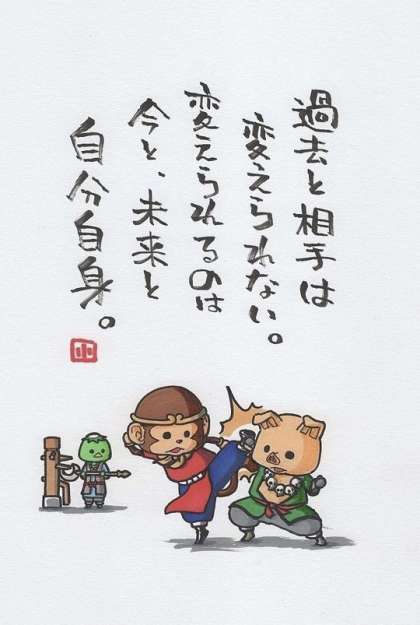 過去と相手は
変えられない。
変えられるのは
今と、未来と
自分自身。